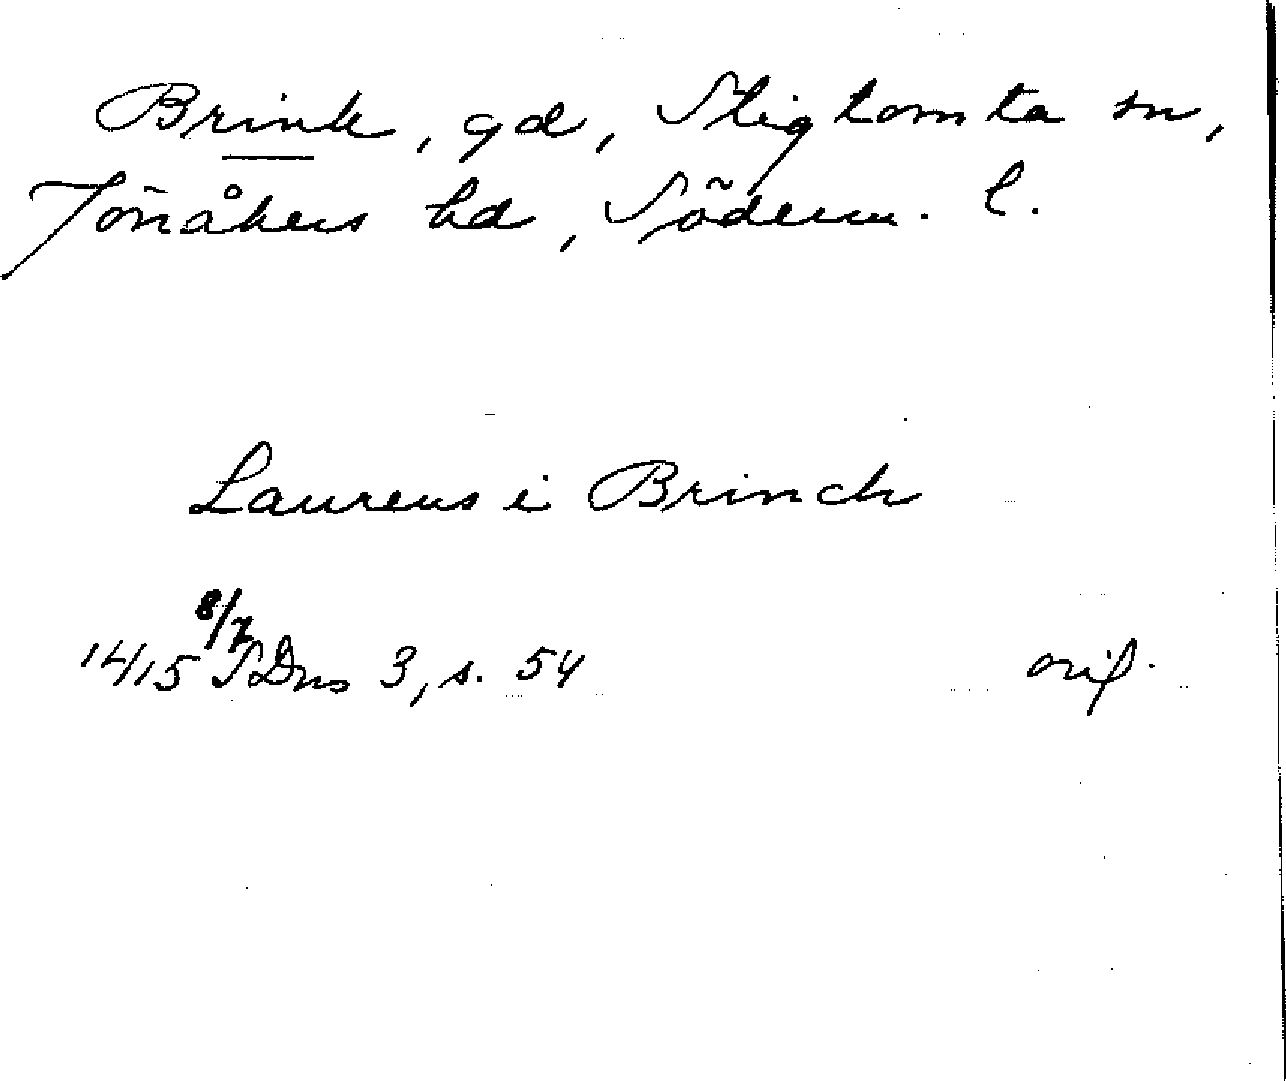 Brink, gd, Stigtomta sn,
Jönåkers hd, Söderm. l.
Laurens i Brinch
1415 8/7 SDns 3, s. 54 orig.